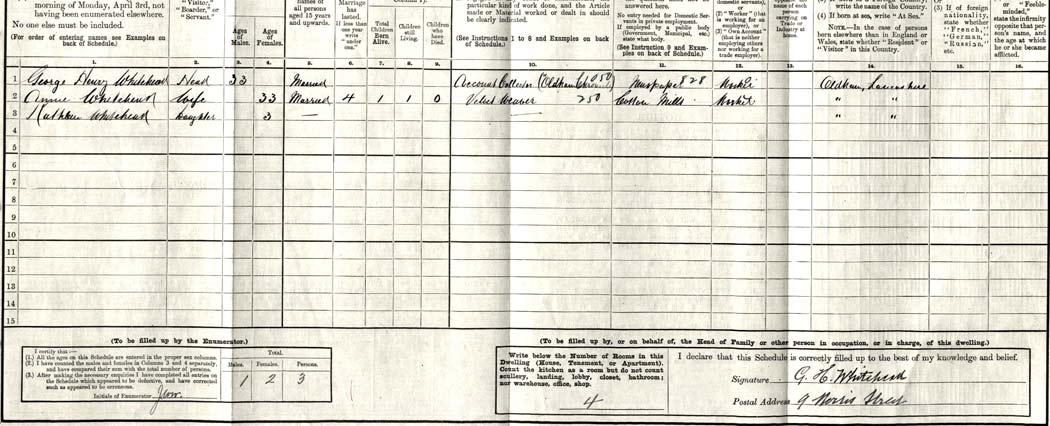 morning of Monday, April 3rd, not
having been enumerated elsewhere.
No one else must be included.
(For order of entering names see Examples on
back of Schedule.)
"Visitor,"
"Boarder," or
"Servant."
names of
all persons
aged 15 years
and upwards.
Marriage
has
lasted.
If less than
one year
write
"under
one."
Ages
of
Males.
Ages
of
Females.
Total
Children
Born
Alive.
Children
still
Living.
Children
who
have
Died.
particular kind of work done, and the Article
made or Material worked or dealt in should
be clearly indicated.
(See Instructions 1 to 8 and Examples on back
of Schedule.)
answered here.
No entry needed for Domestic Servants in private employment.
If employed by a public body
(Government, Municipal, etc.)
state what body.
(See Instruction 9 and Examples on back of Schedule.)
domestic servants),
or
(2) "Worker" (that
is working for an
employer), or
(3) "Own Account"
(that is neither
employing others
nor working for a
trade employer).
of each
person
carrying on
Trade or
Industry at
home.
write the name of the Country.
(4) If born at sea, write "At Sea."
NOTE.—In the case of persons
born elsewhere than in England or
Wales, state whether "Resident" or
"Visitor" in this Country.
(3) If of foreign
nationality,
state whether
"French,"
"German,"
"Russian,"
etc.
or "Feeble-
minded,"
state the infirmity
opposite that person's name, and
the age at which
he or she became
afflicted.
1. 2. 3. 4. 5. 6. 7. 8. 9. 10. 11. 12. 13. 14. 15. 16.
1 George Henry Whitehead Head 33 Married Account Collector (Oldham Chronicle) 050 Newspaper 828 Worker Oldham, Lancashire
2 Annie Whitehead Wife 33 Married 4 1 1 0 Velvet Weaver 250 Cotton Mills Worker " "
3 Kathleen Whitehead Daughter 3 — " "
4
5
6
7
8
9
10
11
12
13
14
15
(To be filled up by the Enumerator.)
I certify that:—
(1.) All the ages on this Schedule are entered in the proper sex columns.
(2.) I have counted the males and females in Columns 3 and 4 separately,
and have compared their sum with the total number of persons.
(3.) After making the necessary enquiries I have completed all entries on
the Schedule which appeared to be defective, and have corrected
such as appeared to be erroneous.
Initials of Enumerator
Total.
Males. Females. Persons.
1 2 3
(To be filled up by, or on behalf of, the Head of Family or other person in occupation, or in charge, of this dwelling.)
Write below the Number of Rooms in this
Dwelling (House, Tenement, or Apartment).
Count the kitchen as a room but do not count
scullery, landing, lobby, closet, bathroom;
nor warehouse, office, shop.
4
I declare that this Schedule is correctly filled up to the best of my knowledge and belief.
Signature G. H. Whitehead
Postal Address 9 Norris Street